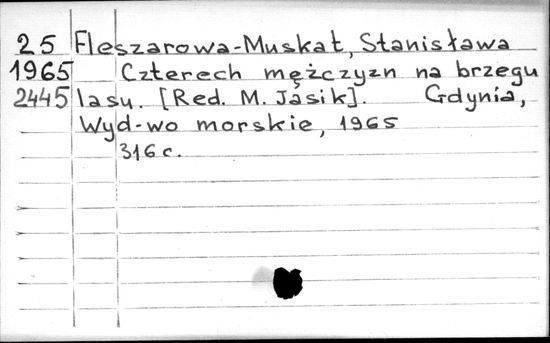 25 Fleszarowa-Muskat, Stanisława
1965 Czterech mężczyzn na brzegu
2445 lasu. [Red. M. Jasik]. Gdynia,
Wyd-wo morskie, 1965
316 c.